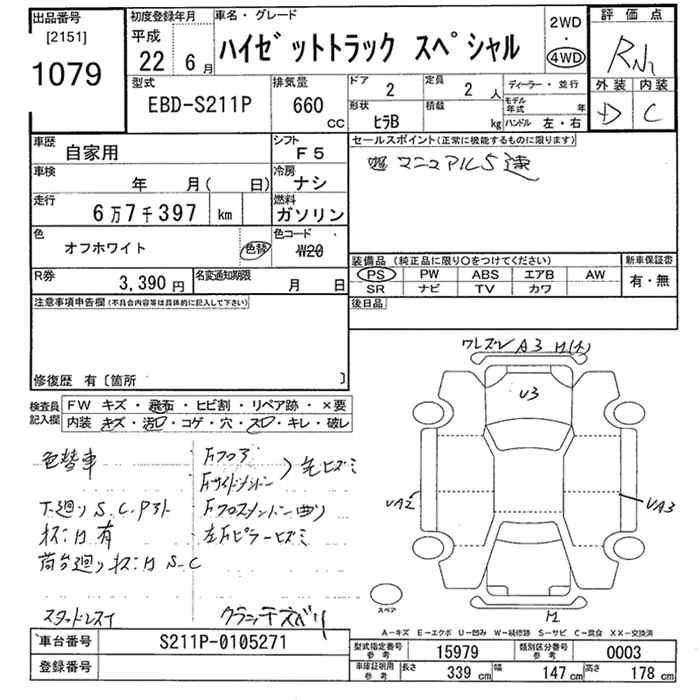 出品番号
[2151]
1079
初度登録年月
平成
22 6月
車名・グレード
ハイゼットトラック スペシャル
2WD
・
4WD
評価点
外装 内装
D C
型式
EBD-S211P
排気量
660
CC
ドア
2
定員
2 人
形状
ヒラB
積載
kg
ディーラー・並行
モデル年式 年
ハンドル 左・右
車歴
自家用
シフト
F5
車検
年 月( 日)
冷房
ナシ
走行
6万7千397 km
燃料
ガソリン
色
オフホワイト
色替
色コード
W20
R券
3,390円
名変通知期限
月 日
セールスポイント(正常に機能するものに限ります)
マニュアル5速
装備品(純正品に限り○をつけてください)
PS PW ABS エアB AW
SR ナビ TV カワ
新車保証書
有・無
後日品
注意事項申告欄(不具合内容等は具体的に記入して下さい)
修復歴 有〔箇所 〕
検査員記入欄
FW キズ・飛石・ヒビ割・リペア跡・×要
内装 キズ・汚ロ・コゲ・穴・スロ・キレ・破レ
色替車
下廻りS.C.
有
荷台廻り S.C
スタッドレス
Fフロア
Fサイドメンバー
Fクロスメンバー曲り
左Fピラーヒズミ
クラッチスベリ
A3
U3
UA2
UA3
スペア
A-キズ E-エクボ U-凹み W-補修跡 S-サビ C-腐食 XX-交換済
車台番号
S211P-0105271
登録番号
型式指定番号 参考
15979
類別区分番号 参考
0003
車庫証明用 参考
長さ 339 cm 幅 147 cm 高さ 178 cm